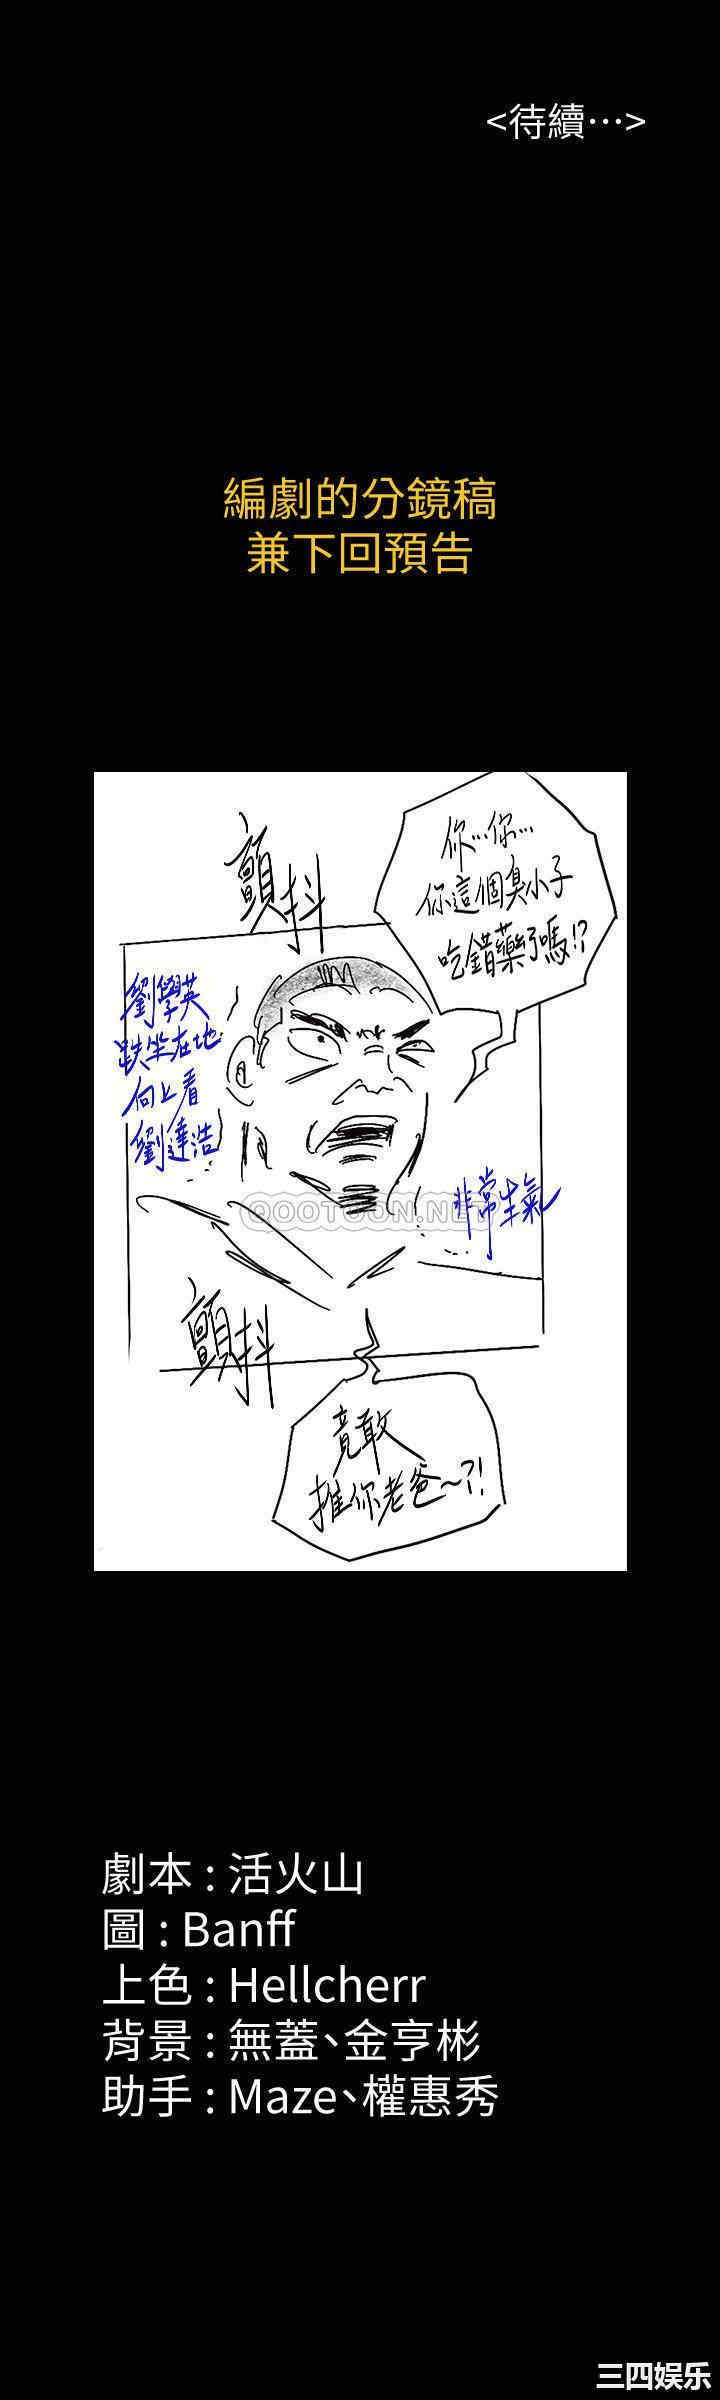 <待續…>
編劇的分鏡稿
兼下回預告
你…你…
你這個臭小子
吃錯藥了嗎!?
顫抖
劉學英
跌坐在地
向上看
劉達浩
非常生氣
QOOTOON.NET
顫抖
竟敢
推你老爸~?!
劇本 : 活火山
圖 : Banff
上色 : Hellcherr
背景 : 無蓋、金亨彬
助手 : Maze、權惠秀
三四娱乐